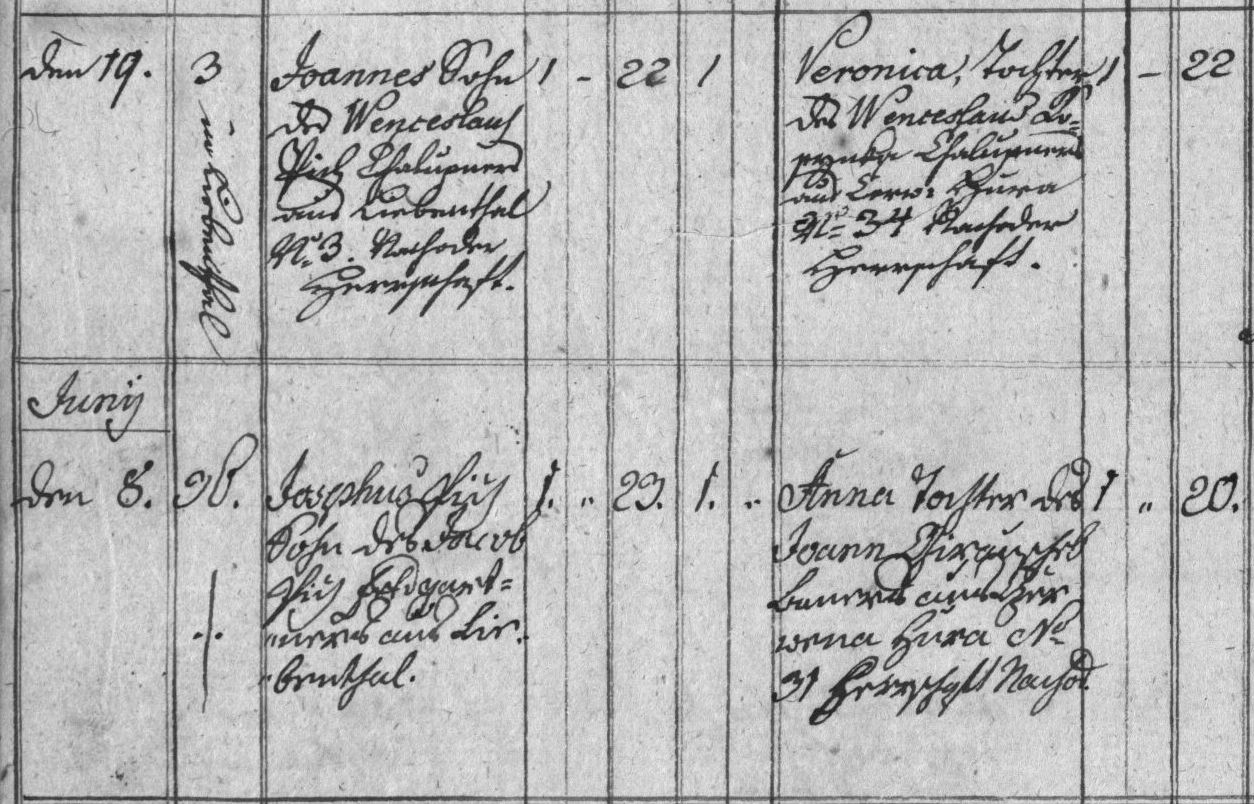 den 19.
3
in Liebenthal
Joannes Sohn
des Wenceslaus
Pich Chalupners
aus Liebenthal
Nro 3. Nachoder
Herrschaft.
1 - 22
1
Veronica, Tochter
des Wenceslaus
Chalupners
aus Cerw: Hura
Nro 34 Nachoder
Herrschaft.
1 - 22
Junÿ
den 8.
98.
Josephus Pich
Sohn des Jacob
Pich Feldgaert=
ners aus Lie.
benthal.
1. " 23.
1. "
Anna Tochter des
Joann
Bauers aus Czer
wena Hura No
31 Herrschaft Nachod.
1 " 20.